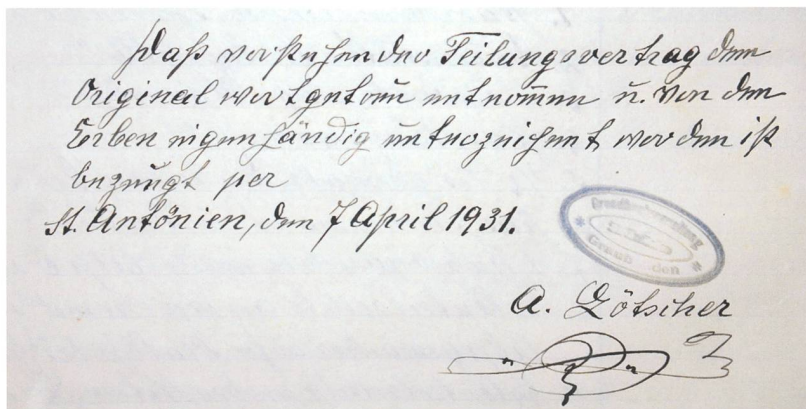 Daß vorstehender Teilungsvertrag dem
Original wortgetreu entnom̅en u. von den
Erben eigenhändig unterzeichnet worden ist
bezeugt per
St. Antönien, den 7 April 1931.
Grundbuchverwaltung
* Graubünden *
A. Lötscher